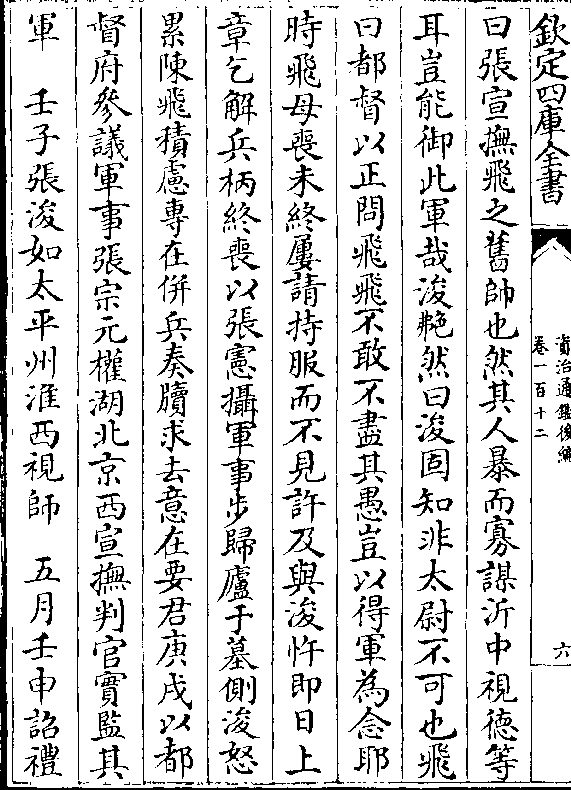 欽定四庫全書
資治通鑑後編
卷一百十二
六
曰張宣撫飛之舊帥也然其人暴而寡謀沂中視德等
耳豈能御此軍哉浚艴然曰浚固知非太尉不可也飛
曰都督以正問飛飛不敢不盡其愚豈以得軍為念耶
時飛母喪未終屢請持服而不見許及與浚忤即日上
章乞解兵柄終喪以張憲攝軍事步歸廬于墓側浚怒
累陳飛積慮專在併兵奏牘求去意在要君庚戌以都
督府參議軍事張宗元權湖北京西宣撫判官實監其
軍　壬子張浚如太平州淮西視師　五月壬申詔禮